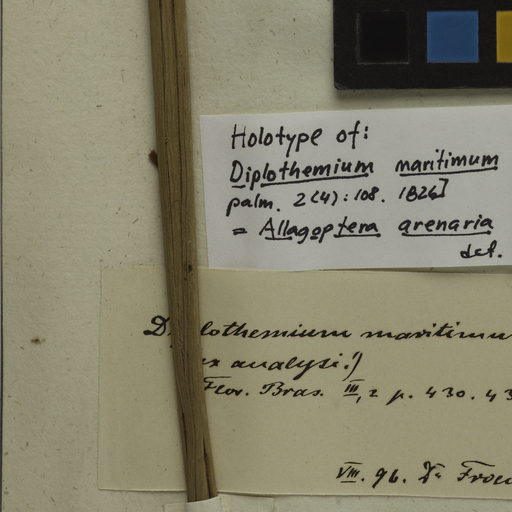 Holotype of:
Diplothemium maritimum
palm. 2(4): 108. 1826]
= Allagoptera arenaria
det.
D lothemium maritimu
ex analysi!)
Flor. Bras. III, 2 p. 430. 43
VIII. 96. Dr